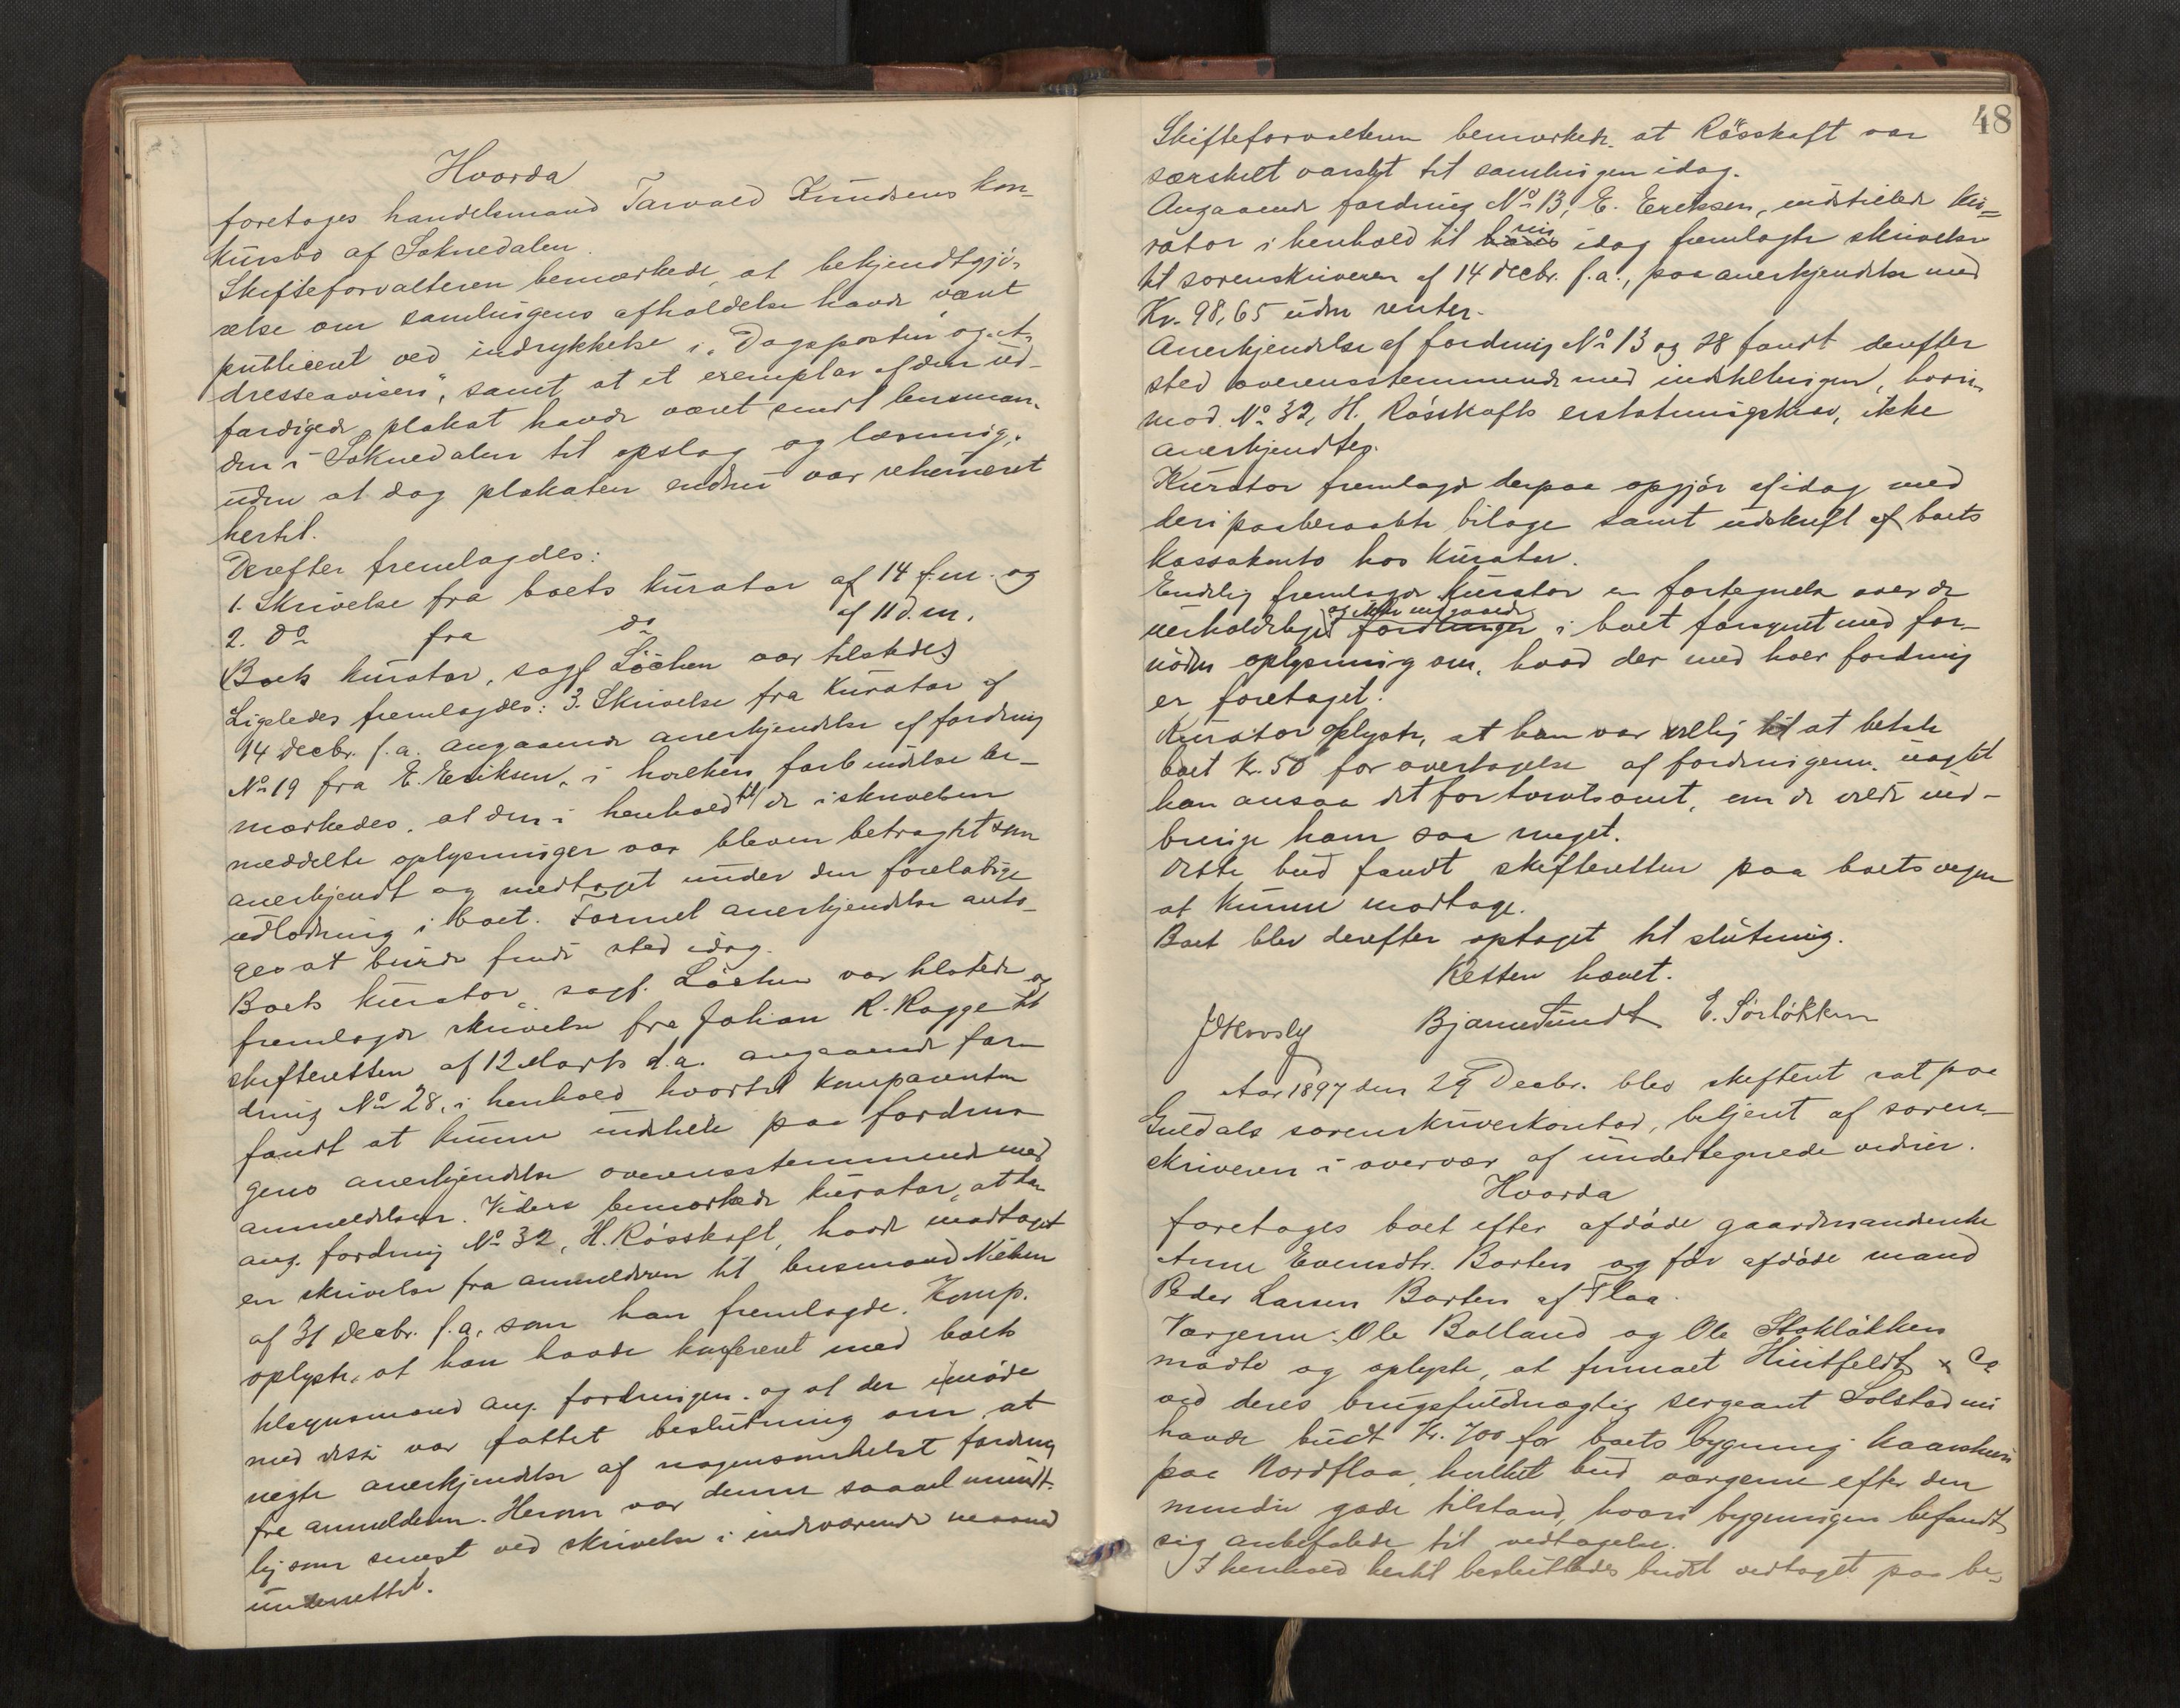 Hvorda
foretages handelsmand Tarvald Knudsens kon-
kursbo af Soknedalen.
Skifteforvalteren bemærkede, at bekjendtgjö-
relse om samlingens afholdelse havde været
publiceret ved indrykkelse i "Dagsposten" og "A-
dresseavisen", samt at et exemplar af den ud-
færdigede plakat havde været sendt lensman-
den i Soknedalen til opslag og læsning,
uden at dog plakaten endnu var returneret
hertil.
Derefter fremlagdes:
1. Skrivelse fra boets kurator af 14 f.m. og
2. do fra do af 11 d.m.
(Boets kurator, sagf. Löchen var tilstede)
Ligeledes fremlagdes: 3. Skrivelse fra kurator af
14 Decbr. f.a. angaaende anerkjendelse af fordring
No 19 fra E. Eriksen, i hvilken forbindelse be-
mærkedes, at den i henhold til de i skrivelsen
meddelte oplysninger var bleven betragtet som
anerkjendt og medtaget under den foreløbige
udlodning i boet. Formel anerkjendelse anto-
ges at burde finde sted idag.
Boets kurator, sagf. Löchen var tilstede og
fremlagde skrivelse fra Johan R. Rogge til
skifteretten af 12 Marts d.a. angaaende for-
dring No 28, i henhold hvortil komparenten
fandt at kunne indstille paa fordrin-
gens anerkjendelse overensstemmende med
anmeldelsen. Videre bemærkede kurator, at han
ang. fordring No 32, H. Rösskaft, havde modtaget
en skrivelse fra anmelderen til lensmand Nielsen
af 31 Decbr. f.a. som han fremlagde. Komp.
oplyste, at han havde konfereret med boets
tilsynsmand ang. fordringen, og at der i møde
med disse var fattet beslutning om at
negte anerkjendelse af nogensomhelst fordring
fra anmelderen. Herom var denne saavel mundt-
lig som senest ved skrivelse i indeværende maaned
underrettet.
48
Skifteforvalteren bemærkede, at Rösskaft var
særskilt varslet til samlingen idag.
Angaaende fordring No 13, E. Eriksen, indstillede ku-
rator i henhold til hans sin idag fremlagte skrivelse
til sorenskriveren af 14 Decbr. f.a., paa anerkjendelse med
Kr. 98,65 uden renter.
Anerkjendelse af fordring No 13 og 28 fandt derefter
sted overensstemmende med indstillingen, hvori-
mod No 32, H. Rösskafts erstatningskrav, ikke
anerkjendtes.
Kurator fremlagde derpaa opgjör af idag med
deri paaberaabte bilage samt udskrift af boets
kassakonto hos kurator.
Endelig fremlagde kurator en fortegnelse over de
uerholdelige og ikke indgaaede fordringer i boet forsynet med for-
nöden oplysning om, hvad der med hver fordring
er foretaget.
Kurator oplyste, at han var villig til at betale
boet Kr. 50 for overtagelse af fordringerne, uagtet
han ansaa det for tvivlsomt, om de vilde ind-
bringe ham saa meget.
Dette bud fandt skifteretten paa boets vegne
at kunne modtage.
Boet blev derefter optaget til slutning.
Retten hævet.
Bjarne Sundt E. Sörlökken
Aar 1897 den 29 Decbr. blev skifteret sat paa
Guldals sorenskriverkontor, betjent af soren-
skriveren i overvær af undertegnede vidner.
Hvorda
foretages boet efter afdöde gaardmandenke
Anne Evensdtr. Borten og för afdöde mand
Peder Larsen Borten af Flaa.
Værgerne Ole Bolland og Ole Stoklökken
mödte og oplyste, at firmaet Huitfeldt & Co
ved deres brugsfuldmægtig sergeant Solstad nu
havde budt Kr. 700 for boets bygning
paa Nordflaa, hvilket bud værgerne efter den
mindre gode tilstand, hvori bygningen befandt
sig anbefalede til vedtagelse.
I henhold hertil besluttedes budet vedtaget paa be-